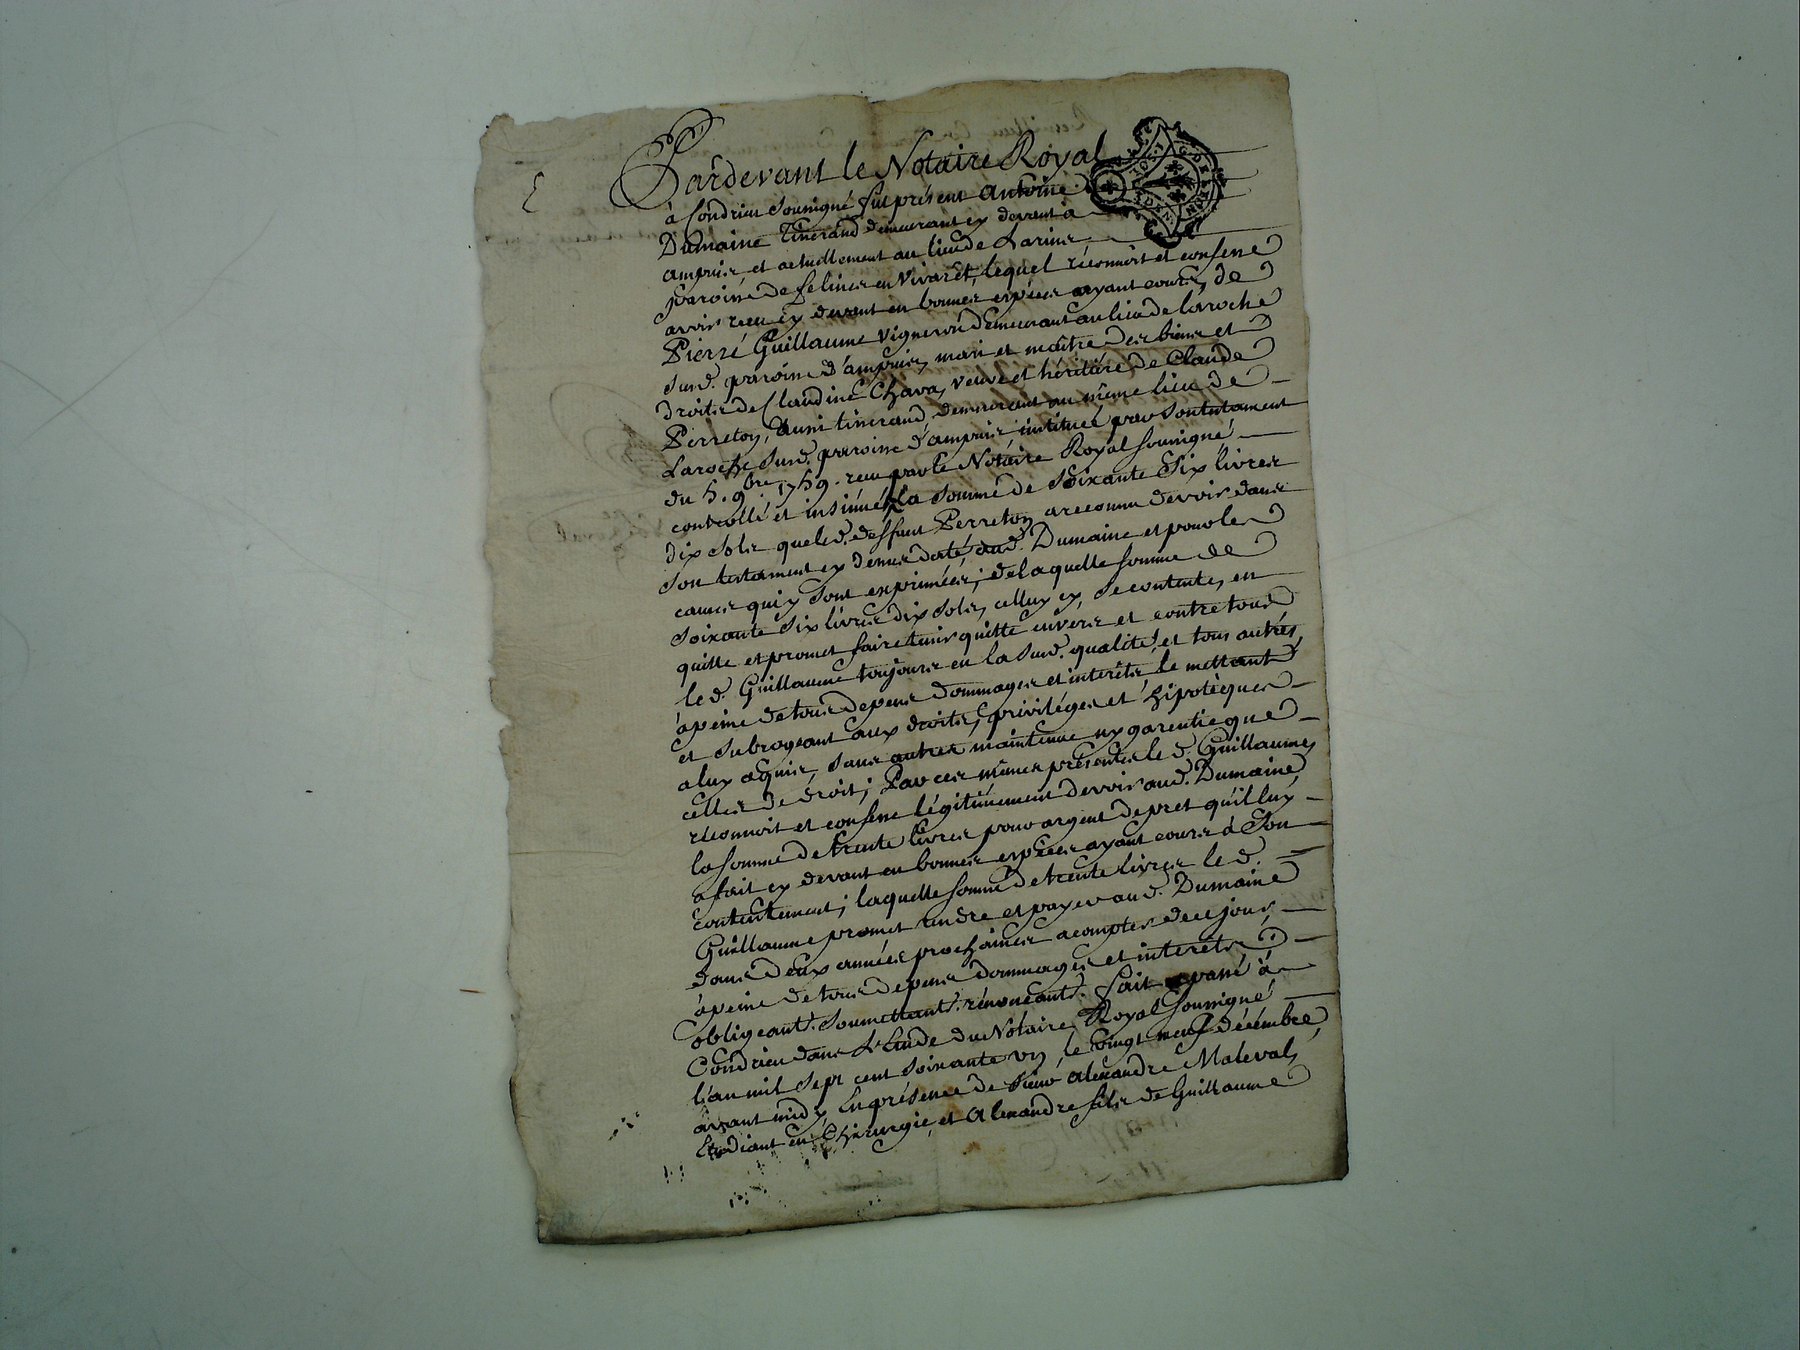 Pardevant le Notaire Royal
à Condrieu soussigné fut présent Antoine
Dumaine Tisserand demeurant cy devant à
ampuis, et actuellement au lieu de Larine
paroisse de felines en Vivarét, lequel réconnoit et confesse
avoir reçu cy devant en bonnes espèces ayant cours, de
Pierré Guillaume vigneron demeurant au lieu de laroche
susd. paroisse d'ampuis, mari et maître des biens et
droits de Claudine Chava, veuve et héritière de Claude
Perreton, aussi tisserand, demeurant au même lieu de
Laroche susd. paroisse d'ampuis instituée par son testament
du 5. 9bre 1759. reçu par le Notaire Royal soussigné
controllé et insinué, la somme de soixante six livres
dix sols que led. deffunt Perreton a reconnu devoir dans
son testament cy dessus daté aud. Dumaine et pour les
causes qui y sont exprimées; de laquelle somme de
soixante six livres dix sols, celluy cy, se contente, en
quitte et promet faire tenir quitte envers et contre tous
le d. Guillaume toujours en la susd. qualité, et tous autres,
à peine de tous depens dommages et interêts, le mettant
et subrogeant aux droits, priviléges et hipotèques
a luy aquis, sans autres maintenue ny garentie que
celles de droit; Par ces mêmes présentes le d. Guillaume,
réconnoit et confesse légitimement devoir aud. Dumaine
la somme de trente livres pour argent de pret qu'il luy
a fait cy devant en bonnes espèces ayant cours à son
contentement; laquelle somme de trente livres le d.
Guillaume promet rendre et payer aud. Dumaine
dans deux années prochaines a compter de ce jour,
à peine de tous depens dommages et interets
obligeant. soumettant. rénonceant. fait et passé à
Condrieu dans L'Etude du Notaire Royal soussigné
l'an mil sept cent soixante un, le vingt neuf décembre,
avant midy, En présence de sieur Alexandre Maleval,
Etudiant en Chirurgie, et Alexandre fils de Guillaume